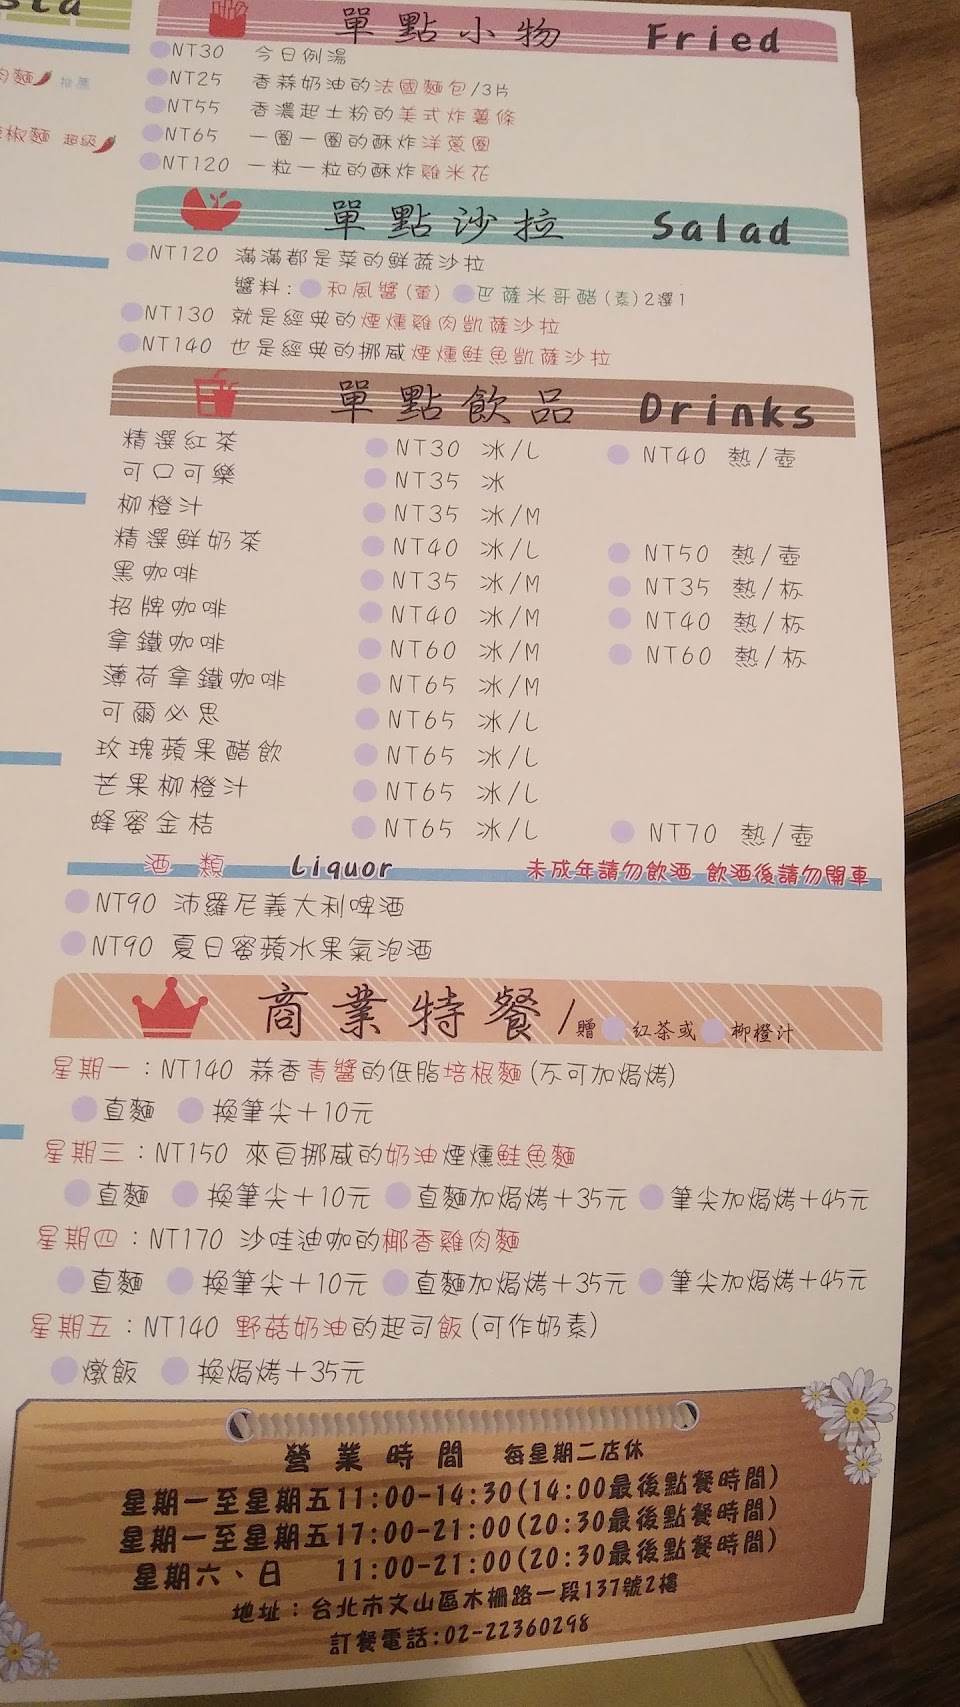 sta
肉麵 推薦
椒麵 超級
單點小物 Fried
NT30 今日例湯
NT25 香蒜奶油的法國麵包/3片
NT55 香濃起士粉的美式炸薯條
NT65 一圈一圈的酥炸洋蔥圈
NT120 一粒一粒的酥炸雞米花
單點沙拉 Salad
NT120 滿滿都是菜的鮮蔬沙拉
醬料: 和風醬(葷) 巴薩米哥醋(素)2選1
NT130 就是經典的煙燻雞肉凱薩沙拉
NT140 也是經典的挪威煙燻鮭魚凱薩沙拉
單點飲品 Drinks
精選紅茶 NT30 冰/L NT40 熱/壺
可口可樂 NT35 冰
柳橙汁 NT35 冰/M
精選鮮奶茶 NT40 冰/L NT50 熱/壺
黑咖啡 NT35 冰/M NT35 熱/杯
招牌咖啡 NT40 冰/M NT40 熱/杯
拿鐵咖啡 NT60 冰/M NT60 熱/杯
薄荷拿鐵咖啡 NT65 冰/M
可爾必思 NT65 冰/L
玫瑰蘋果醋飲 NT65 冰/L
芒果柳橙汁 NT65 冰/L
蜂蜜金桔 NT65 冰/L NT70 熱/壺
酒類 Liquor 未成年請勿飲酒 飲酒後請勿開車
NT90 沛羅尼義大利啤酒
NT90 夏日蜜蘋水果氣泡酒
商業特餐/贈 紅茶或 柳橙汁
星期一：NT140 蒜香青醬的低脂培根麵(不可加焗烤)
直麵 換筆尖＋10元
星期三：NT150 來自挪威的奶油煙燻鮭魚麵
直麵 換筆尖＋10元 直麵加焗烤＋35元 筆尖加焗烤＋45元
星期四：NT170 沙哇迪咖的椰香雞肉麵
直麵 換筆尖＋10元 直麵加焗烤＋35元 筆尖加焗烤＋45元
星期五：NT140 野菇奶油的起司飯(可作奶素)
燉飯 換焗烤＋35元
營業時間 每星期二店休
星期一至星期五11:00-14:30(14:00最後點餐時間)
星期一至星期五17:00-21:00(20:30最後點餐時間)
星期六、日 11:00-21:00(20:30最後點餐時間)
地址：台北市文山區木柵路一段137號2樓
訂餐電話:02-22360298